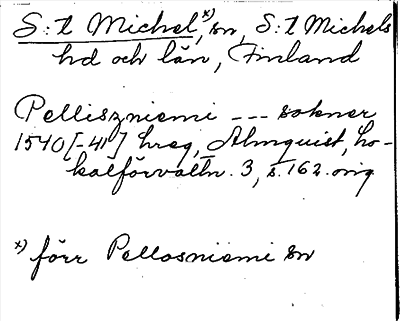 S:t Michel,x) sn, S:t Michels
hd och län, Finland
Pelliszniemi --- sokner
1540[-41] hreg, Almquist, Lo-
kalförvaltn. 3, s. 162. orig
x) förr Pellosniemi sn